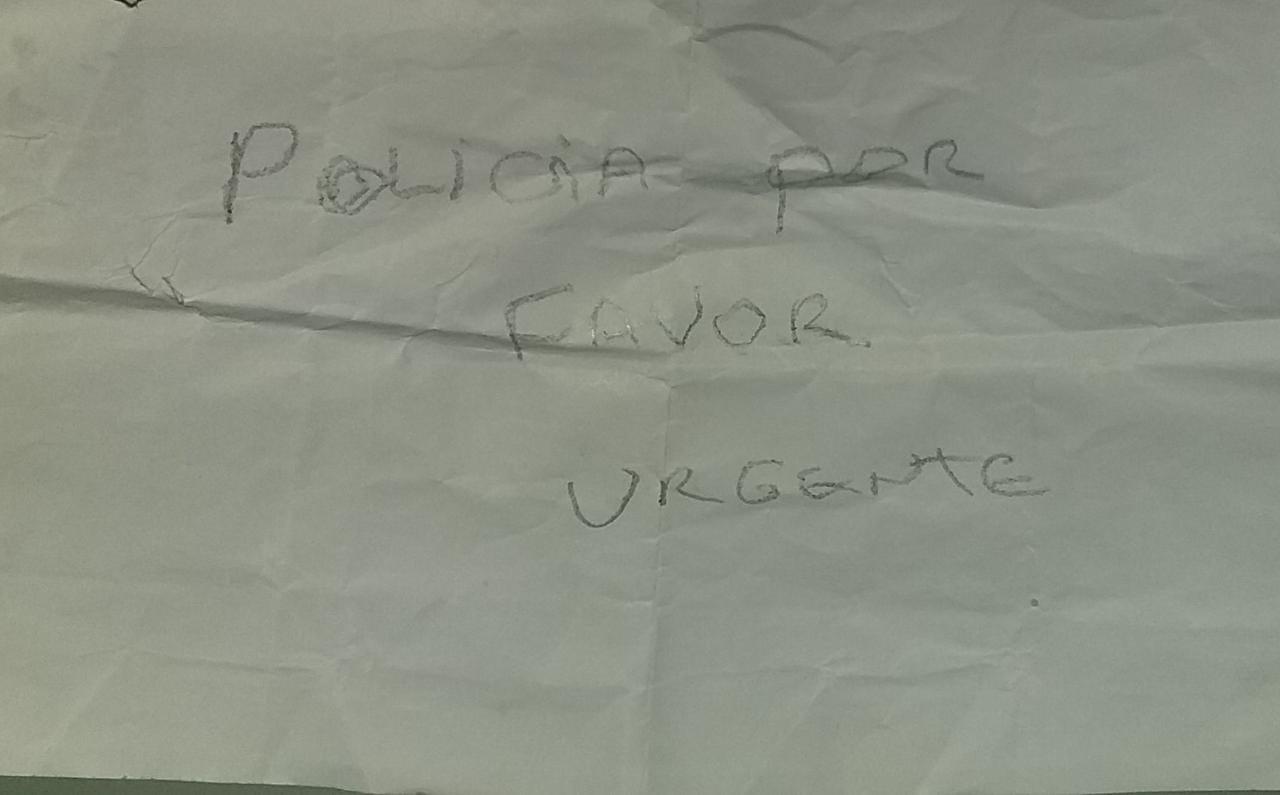 POLICIA POR
FAVOR
URGENTE